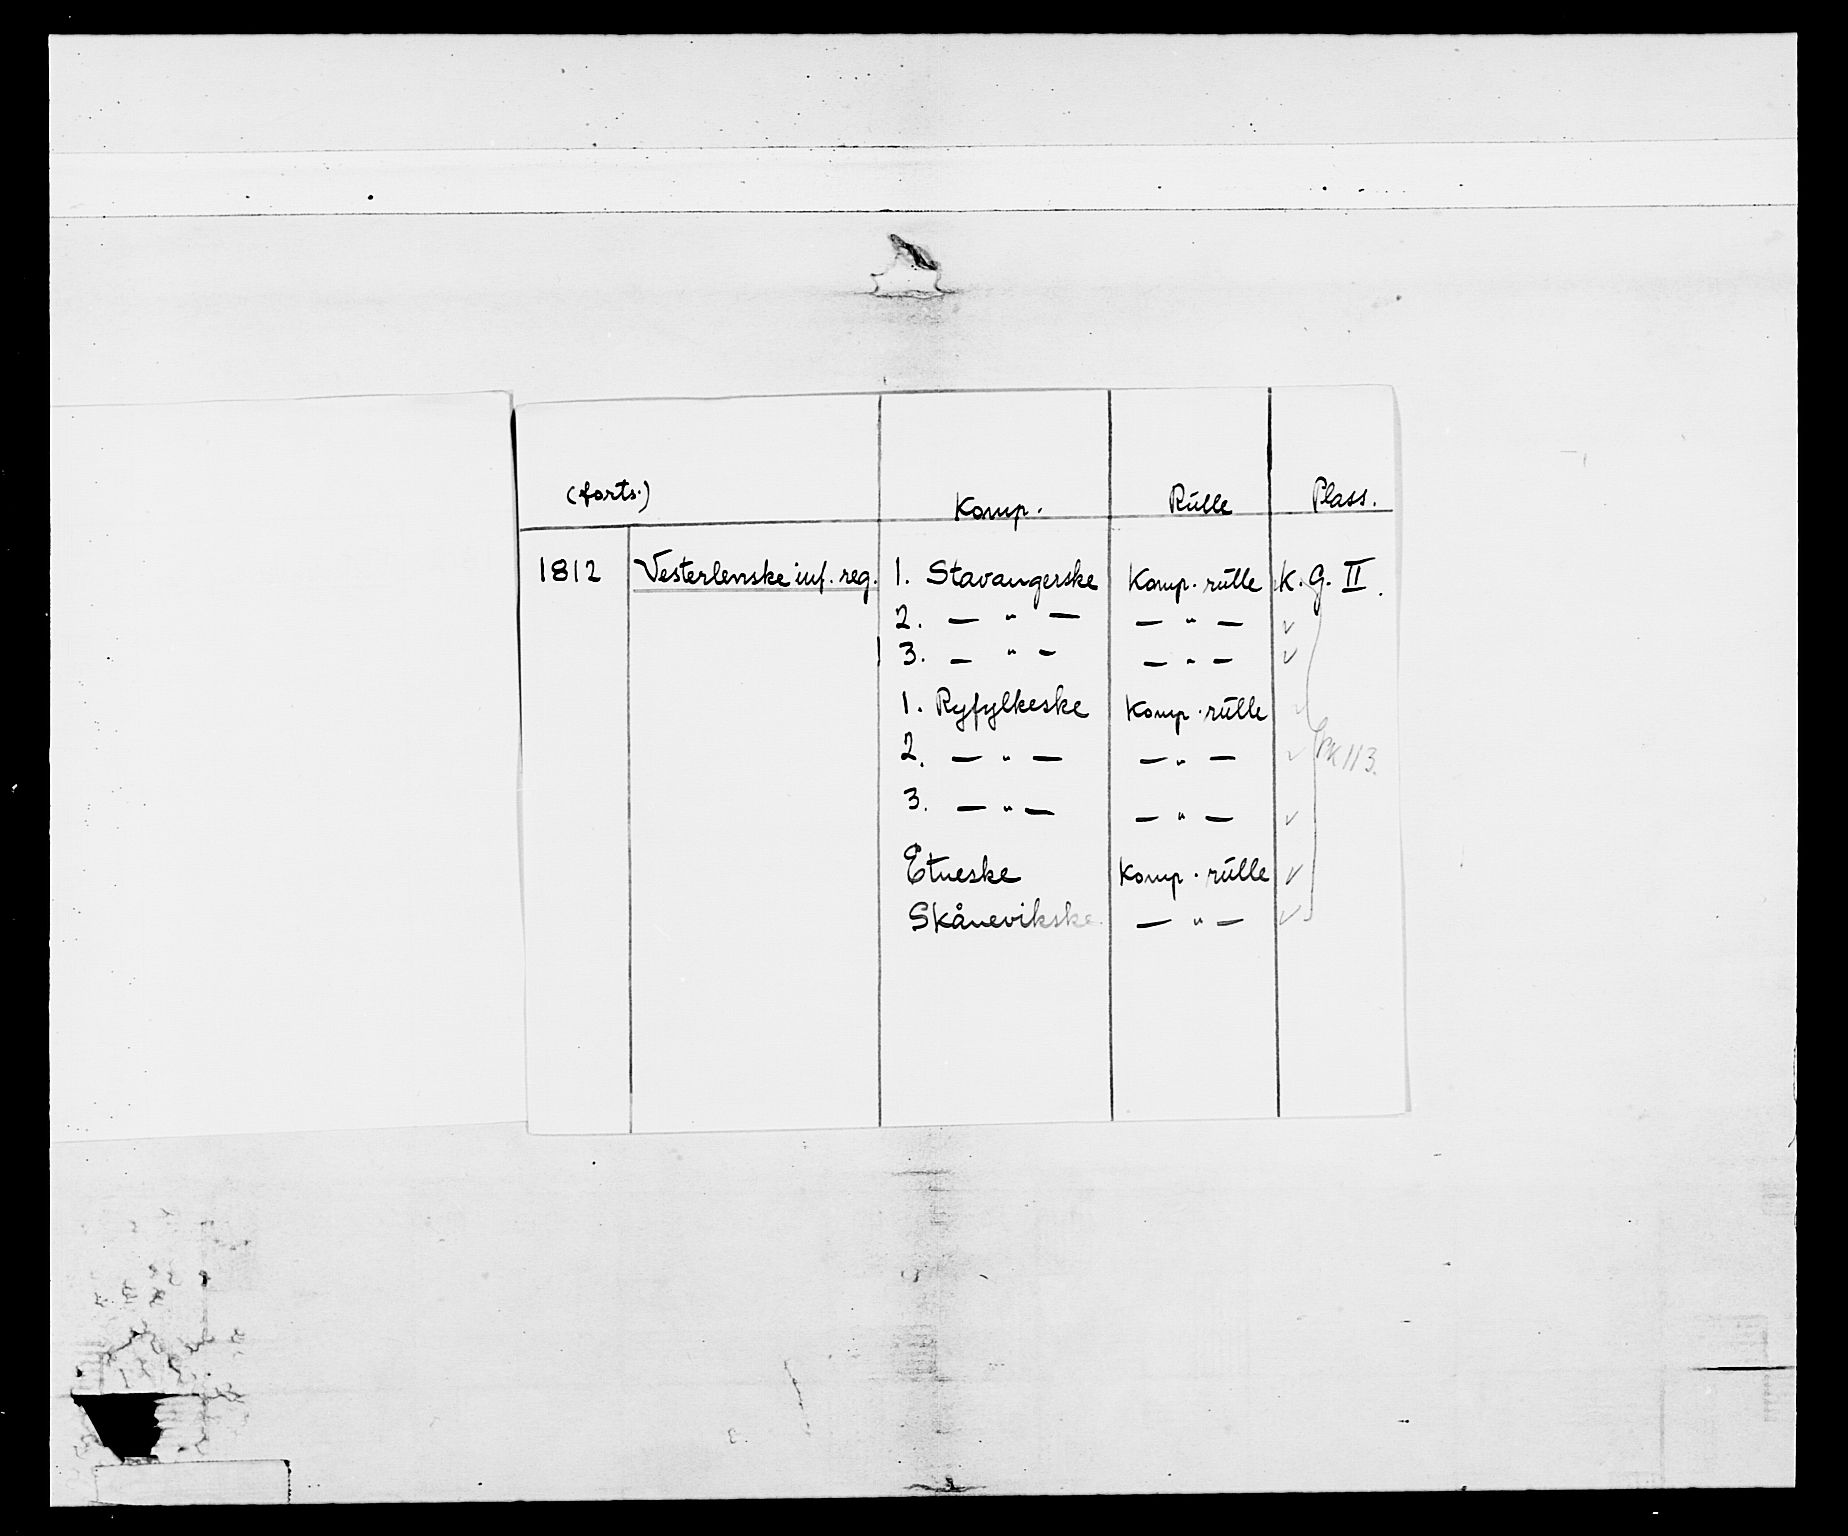 (forts.) Komp. Rulle Plass.
1812 Vesterlenske inf. reg. 1. Stavangerske Komp. rulle K. G. II.
2. — " — — " — ✓
3. — " — — " — ✓
1. Ryfylkeske Komp. rulle ✓
2. — " — — " — ✓ PK 113.
3. — " — — " — ✓
Etneske Komp. rulle ✓
Skånevikske — " — ✓